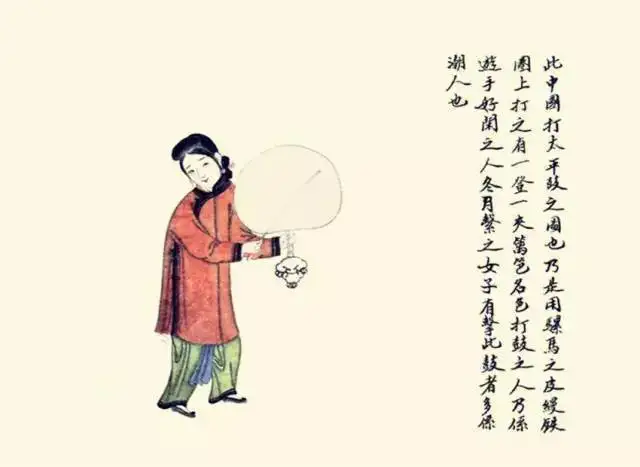 此中國打太平鼓之圖也乃是用騾馬之皮縵鉄
圈上打之有一登一夫萬笆名色打鼓之人乃係
遊手好閑之人冬月擊之女子有擊此鼓者多係
潮人也